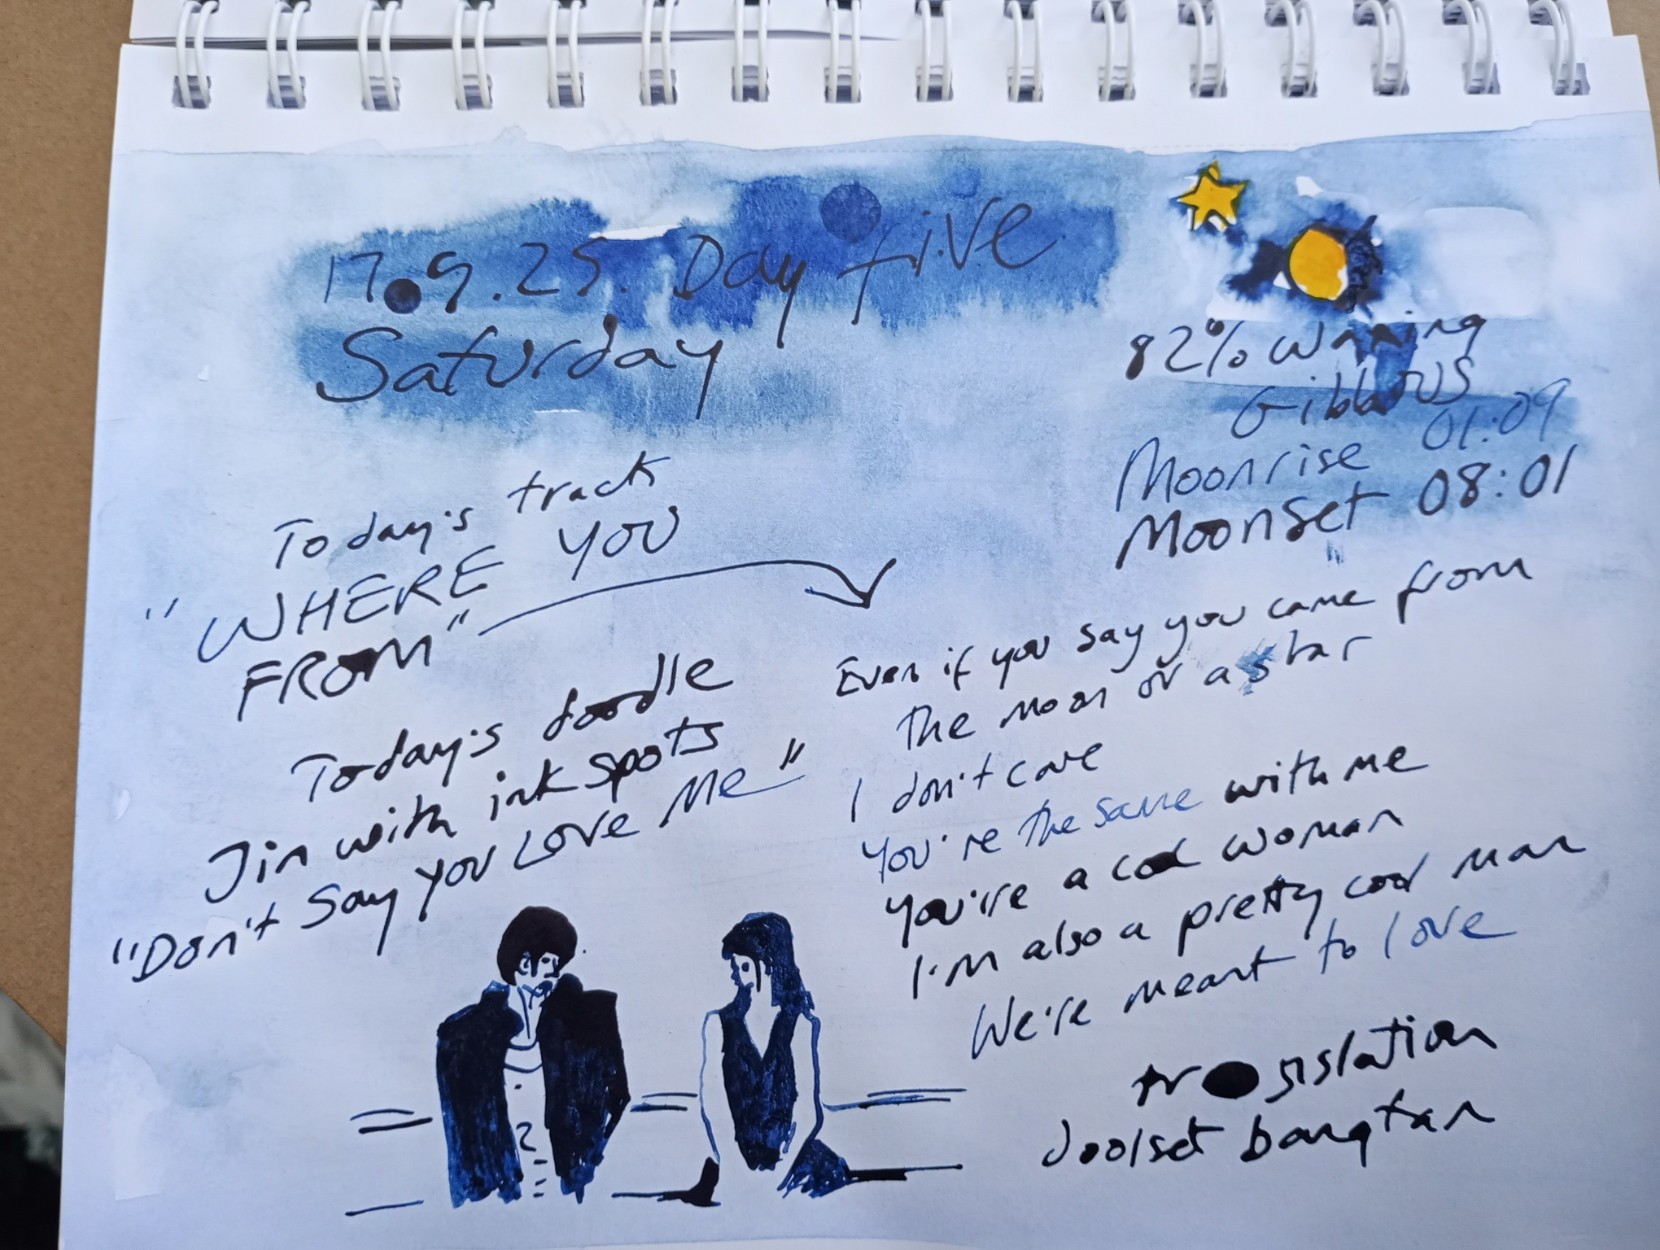 17.9.25. Day five
Saturday
82% waning
Gibbous
Moonrise 01:09
Moonset 08:01
Today's track
"WHERE YOU
FROM"
Today's doodle
Jin with ink spots
"Don't Say You Love Me"
Even if you say you came from
the moon or a star
I don't care
You're the same with me
You're a cool woman
I'm also a pretty cool man
We're meant to love
translation
doolset bangtan